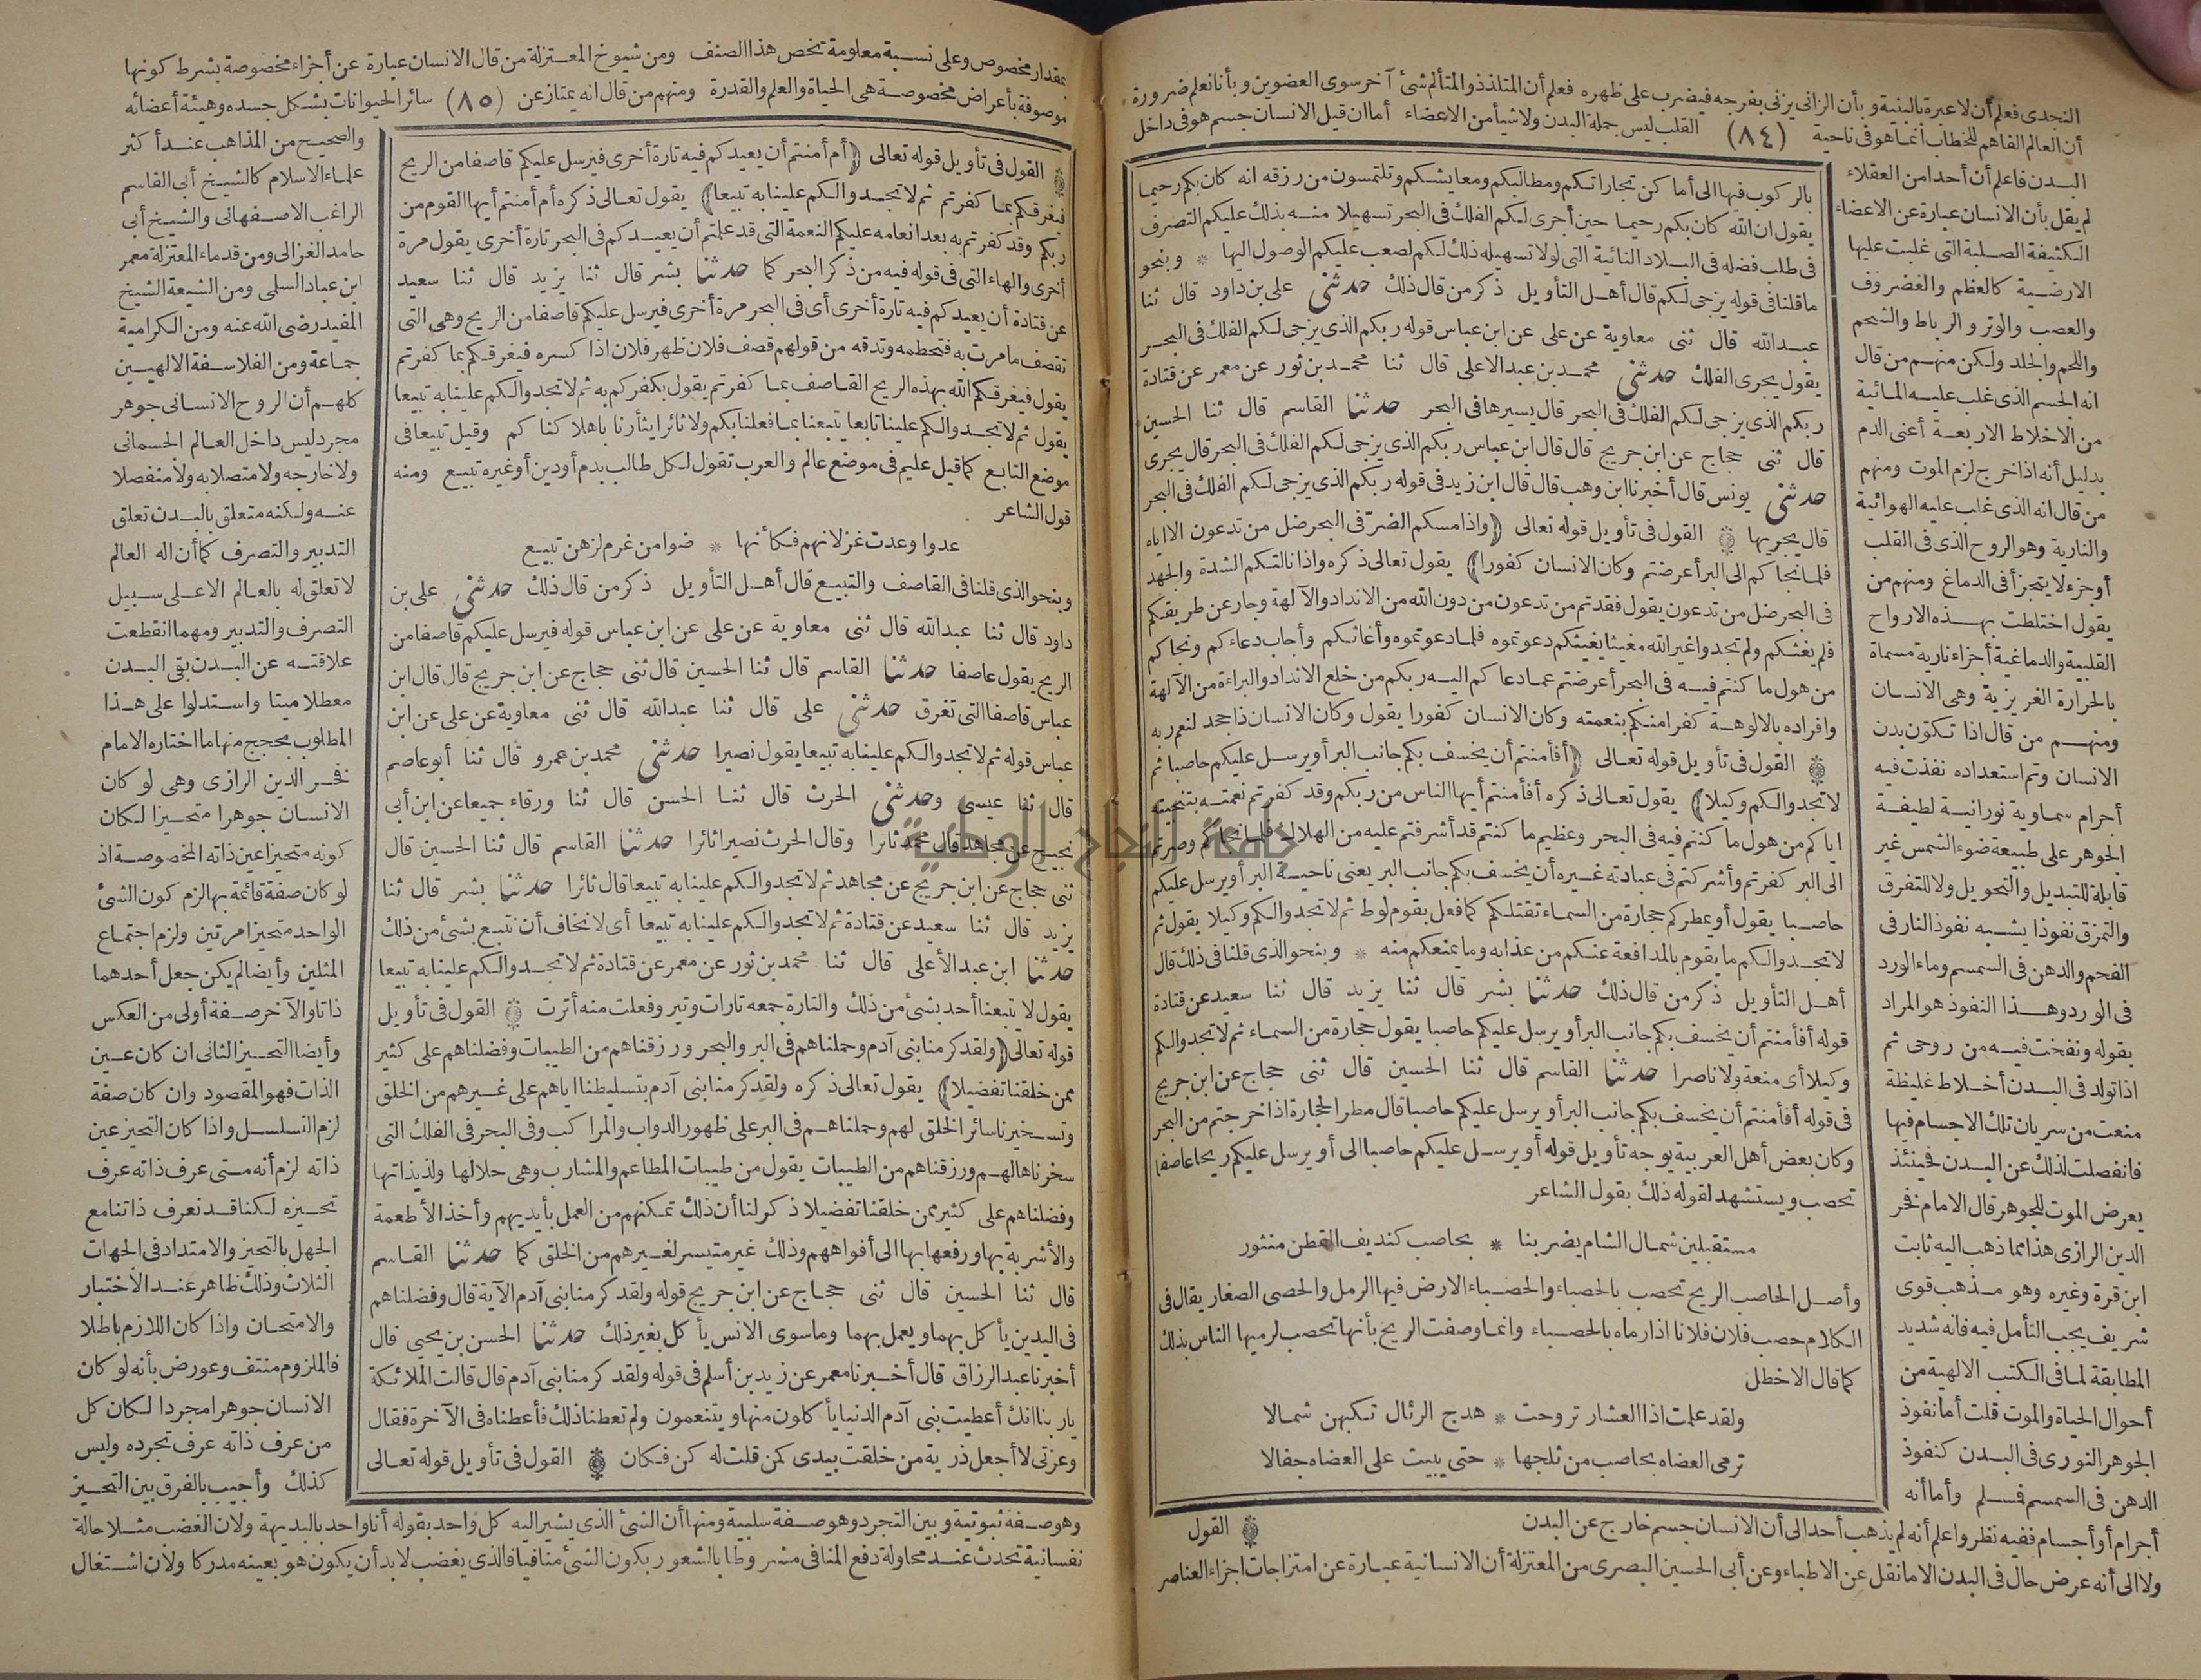 النجدى فعلم أن لا عبرة بالبنية و بأن الزانى يزنى بفرجه فيضرب على ظهره فعلم أن المتلذذ والمتألم شئ آخر سوى العضوين و بأنا نعلم ضرورة
أن العالم الفاهم للخطاب أنما هو فى ناحية (٨٤) القلب ليس جملة البدن ولا شيأ من الاعضاء أما ان قيل الانسان جسم هو فى داخل
البدن فاعلم أن أحدا من العقلاء
لم يقل بأن الانسان عبارة عن الاعضاء
الكثيفة الصلبة التى غلبت عليها
الارضية كالعظم والغضروف
والعصب والوتر والرباط والشحم
واللحم والجلد ولكن منهم من قال
انه الجسم الذى غلب عليه المائية
من الاخلاط الاربعة أعنى الدم
بدليل أنه اذا خرج لزم الموت ومنهم
من قال انه الذى غلب عليه الهوائية
والنارية وهو الروح الذى فى القلب
أو جزء لا يتجزأ فى الدماغ ومنهم من
يقول اختلطت بهذه الارواح
القلبية والدماغية أجزاء نارية مسماة
بالحرارة الغريزية وهى الانسان
ومنهم من قال اذا تكوّن بدن
الانسان وتم استعداده نفذت فيه
أجرام سماوية نورانية لطيفة
الجوهر على طبيعة ضوء الشمس غير
قابلة للتبديل والتحويل ولا للتفرق
والتمزق نفوذا يشبه نفوذ النار فى
الفحم والدهن فى السمسم وماء الورد
فى الورد وهذا النفوذ هو المراد
بقوله ونفخت فيه من روحى ثم
اذا تولد فى البدن أخلاط غليظة
منعت من سريان تلك الاجسام فيها
فانفصلت لذلك عن البدن فحينئذ
يعرض الموت للجوهر قال الامام فخر
الدين الرازى هذا مما ذهب اليه ثابت
ابن قرة وغيره وهو مذهب قوى
شريف يجب التأمل فيه فانه شديد
المطابقة لما فى الكتب الالهية من
أحوال الحياة والموت قلت أما نفوذ
الجوهر النورى فى البدن كنفوذ
الدهن فى السمسم فسلم وأما أنه
بالركوب فيها الى أما كن تجاراتكم ومطالبكم ومعايشكم وتلتمسون من رزقه انه كان بكم رحيما
يقول ان الله كان بكم رحيما حين أجرى لكم الفلك فى البحر تسهيلا منه بذلك عليكم التصرف
فى طلب فضله فى البلاد النائية التى لولا تسهيله ذلك لكم لصعب عليكم الوصول اليها * وبنحو
ما قلنا فى قوله يزجى لكم قال أهل التأويل ذكر من قال ذلك حدثنى على بن داود قال ثنا
عبد الله قال ثنى معاوية عن على عن ابن عباس قوله ربكم الذى يزجى لكم الفلك فى البحر
يقول يجرى الفلك حدثنى محمد بن عبد الاعلى قال ثنا محمد بن ثور عن معمر عن قتادة
ربكم الذى يزجى لكم الفلك فى البحر قال يسيرها فى البحر حدثنا القاسم قال ثنا الحسين
قال ثنى حجاج عن ابن جريج قال قال ابن عباس ربكم الذى يزجى لكم الفلك فى البحر قال يجرى
حدثنى يونس قال أخبرنا ابن وهب قال قال ابن زيد فى قوله ربكم الذى يزجى لكم الفلك فى البحر
قال يجريها ۞ القول فى تأويل قوله تعالى (واذا مسكم الضر فى البحر ضل من تدعون الا اياه
فلما نجاكم الى البر أعرضتم وكان الانسان كفورا) يقول تعالى ذكره واذا نالتكم الشدة والجهد
فى البحر ضل من تدعون يقول فقدتم من تدعون من دون الله من الانداد والآلهة وجار عن طريقكم
فلم يغثكم ولم تجدوا غير الله مغيثا يغيثكم دعوتموه فلما دعوتموه وأغاثكم وأجاب دعاءكم ونجاكم
من هول ما كنتم فيه فى البحر أعرضتم عما دعاكم اليه ربكم من خلع الانداد والبراءة من الآلهة
وافراده بالالوهة كفرا منكم بنعمته وكان الانسان كفورا يقول وكان الانسان ذا جحد لنعم ربه
۞ القول فى تأويل قوله تعالى (أفأمنتم أن يخسف بكم جانب البر أو يرسل عليكم حاصبا ثم
لا تجدوا لكم وكيلا) يقول تعالى ذكره أفأمنتم أيها الناس من ربكم وقد كفرتم نعمته بتنجيته
اياكم من هول ما كنتم فيه فى البحر وعظيم ما كنتم قد أشرفتم عليه من الهلاك فلما نجاكم وصرتم
الى البر كفرتم وأشركتم فى عبادته غيره أن يخسف بكم جانب البر يعنى ناحية البر أو يرسل عليكم
حاصبا يقول أو يمطركم حجارة من السماء تقتلكم كما فعل بقوم لوط ثم لا تجدوا لكم وكيلا يقول ثم
لا تجدوا لكم ما يقوم بالمدافعة عنكم من عذابه وما يمنعكم منه * وبنحو الذى قلنا فى ذلك قال
أهل التأويل ذكر من قال ذلك حدثنا بشر قال ثنا يزيد قال ثنا سعيد عن قتادة
قوله أفأمنتم أن يخسف بكم جانب البر أو يرسل عليكم حاصبا يقول حجارة من السماء ثم لا تجدوا لكم
وكيلا أى منعة ولا ناصرا حدثنا القاسم قال ثنا الحسين قال ثنى حجاج عن ابن جريج
فى قوله أفأمنتم أن يخسف بكم جانب البر أو يرسل عليكم حاصبا قال مطر الحجارة اذا خرجتم من البحر
وكان بعض أهل العربية يوجه تأويل قوله أو يرسل عليكم حاصبا الى أو يرسل عليكم ريحا عاصفا
تحصب ويستشهد لقوله ذلك بقول الشاعر
مستقبلين شمال الشام يضربنا * بحاصب كنديف القطن منثور
وأصل الحاصب الريح تحصب بالحصباء والحصباء الارض فيها الرمل والحصى الصغار يقال فى
الكلام حصب فلان فلانا اذا رماه بالحصباء وانما وصفت الريح بأنها تحصب لرميها الناس بذلك
كما قال الاخطل
ولقد علمت اذا العشار تروحت * هدج الرئال تكبهن شمالا
ترمى العضاه بحاصب من ثلجها * حتى يبيت على العضاه جفالا
أجرام أو أجسام ففيه نظر واعلم أنه لم يذهب أحد الى أن الانسان جسم خارج عن البدن ۞ القول
ولا الى أنه عرض حال فى البدن الا ما نقل عن الاطباء وعن أبى الحسين البصرى من المعتزلة أن الانسانية عبارة عن امتزاجات اجزاء العناصر
بمقدار مخصوص وعلى نسبة معلومة تخص هذا الصنف ومن شيوخ المعتزلة من قال الانسان عبارة عن أجزاء مخصوصة بشرط كونها
موصوفة بأعراض مخصوصة هى الحياة والعلم والقدرة ومنهم من قال انه يمتاز عن (٨٥) سائر الحيوانات بشكل جسده وهيئة أعضائه
۞ القول فى تأويل قوله تعالى (أم أمنتم أن يعيدكم فيه تارة أخرى فيرسل عليكم قاصفا من الريح
فيغرقكم بما كفرتم ثم لا تجدوا لكم علينا به تبيعا) يقول تعالى ذكره أم أمنتم أيها القوم من
ربكم وقد كفرتم به بعد انعامه عليكم النعمة التى قد علمتم أن يعيدكم فى البحر تارة أخرى يقول مرة
أخرى والهاء التى فى قوله فيه من ذكر البحر كما حدثنا بشر قال ثنا يزيد قال ثنا سعيد
عن قتادة أن يعيدكم فيه تارة أخرى أى فى البحر مرة أخرى فيرسل عليكم قاصفا من الريح وهى التى
تقصف ما مرت به فتحطمه وتدقه من قولهم قصف فلان ظهر فلان اذا كسره فيغرقكم بما كفرتم
يقول فيغرقكم الله بهذه الريح القاصف بما كفرتم يقول بكفركم به ثم لا تجدوا لكم علينا به تبيعا
يقول ثم لا تجدوا لكم علينا تابعا يتبعنا بما فعلنا بكم ولا ثائرا يثأرنا باهلا كنا كم وقيل تبيعا فى
موضع التابع كما قيل عليم فى موضع عالم والعرب تقول لكل طالب بدم أو دين أو غيره تبيع ومنه
قول الشاعر
عدوا وعدت غزلانهم فكأنها * ضوامن غرم لزهن تبيع
وبنحو الذى قلنا فى القاصف والتبيع قال أهل التأويل ذكر من قال ذلك حدثنى على بن
داود قال ثنا عبد الله قال ثنى معاوية عن على عن ابن عباس قوله فيرسل عليكم قاصفا من
الريح يقول عاصفا حدثنا القاسم قال ثنا الحسين قال ثنى حجاج عن ابن جريج قال قال ابن
عباس قاصفا التى تغرق حدثنى على قال ثنا عبد الله قال ثنى معاوية عن على عن ابن
عباس قوله ثم لا تجدوا لكم علينا به تبيعا يقول نصيرا حدثنى محمد بن عمرو قال ثنا أبو عاصم
قال ثنا عيسى وحدثنى الحرث قال ثنا الحسن قال ثنا ورقاء جميعا عن ابن أبى
نجيح عن مجاهد قال محمد ثائرا وقال الحرث نصيرا ثائرا حدثنا القاسم قال ثنا الحسين قال
ثنى حجاج عن ابن جريج عن مجاهد ثم لا تجدوا لكم علينا به تبيعا قال ثائرا حدثنا بشر قال ثنا
يزيد قال ثنا سعيد عن قتادة ثم لا تجدوا لكم علينا به تبيعا أى لا نخاف أن نتبع بشئ من ذلك
حدثنا ابن عبد الأعلى قال ثنا محمد بن ثور عن معمر عن قتادة ثم لا تجدوا لكم علينا به تبيعا
يقول لا يتبعنا أحد بشئ من ذلك والتارة جمعه تارات وتير وفعلت منه أترت ۞ القول فى تأويل
قوله تعالى (ولقد كرمنا بنى آدم وحملناهم فى البر والبحر ورزقناهم من الطيبات وفضلناهم على كثير
ممن خلقنا تفضيلا) يقول تعالى ذكره ولقد كرمنا بنى آدم بتسليطنا اياهم على غيرهم من الخلق
وتسخيرنا سائر الخلق لهم وحملناهم فى البر على ظهور الدواب والمراكب وفى البحر فى الفلك التى
سخرناها لهم ورزقناهم من الطيبات يقول من طيبات المطاعم والمشارب وهى حلالها ولذيذاتها
وفضلناهم على كثير ممن خلقنا تفضيلا ذكر لنا أن ذلك تمكنهم من العمل بأيديهم وأخذ الأطعمة
والأشربة بها ورفعها بها الى أفواههم وذلك غير متيسر لغيرهم من الخلق كما حدثنا القاسم
قال ثنا الحسين قال ثنى حجاج عن ابن جريج قوله ولقد كرمنا بنى آدم الآية قال وفضلناهم
فى اليدين يأكل بهما ويعمل بهما وما سوى الانس يأكل بغير ذلك حدثنا الحسن بن يحيى قال
أخبرنا عبد الرزاق قال أخبرنا معمر عن زيد بن أسلم فى قوله ولقد كرمنا بنى آدم قال قالت الملائكة
يا ربنا انك أعطيت بنى آدم الدنيا يأكلون منها ويتنعمون ولم تعطنا ذلك فأعطناه فى الآخرة فقال
وعزتى لا أجعل ذرية من خلقت بيدى كمن قلت له كن فكان ۞ القول فى تأويل قوله تعالى
والصحيح من المذاهب عند أكثر
علماء الاسلام كالشيخ أبى القاسم
الراغب الاصفهانى والشيخ أبى
حامد الغزالى ومن قدماء المعتزلة معمر
ابن عباد السلمى ومن الشيعة الشيخ
المفيد رضى الله عنه ومن الكرامية
جماعة ومن الفلاسفة الالهيين
كلهم أن الروح الانسانى جوهر
مجرد ليس داخل العالم الجسمانى
ولا خارجه ولا متصلا به ولا منفصلا
عنه ولكنه متعلق بالبدن تعلق
التدبير والتصرف كما أن اله العالم
لا تعلق له بالعالم الا على سبيل
التصرف والتدبير ومهما انقطعت
علاقته عن البدن بقى البدن
معطلا ميتا واستدلوا على هذا
المطلوب بحجج منها ما اختاره الامام
فخر الدين الرازى وهى لو كان
الانسان جوهرا متحيزا لكان
كونه متحيزا عين ذاته المخصوصة اذ
لو كان صفة قائمة بها لزم كون الشئ
الواحد متحيزا مرتين ولزم اجتماع
المثلين وأيضا لم يكن جعل أحدهما
ذاتا والآخر صفة أولى من العكس
وأيضا التحيز الثانى ان كان عين
الذات فهو المقصود وان كان صفة
لزم التسلسل واذا كان التحيز عين
ذاته لزم أنه متى عرف ذاته عرف
تحيزه لكنا قد نعرف ذاتنا مع
الجهل بالتحيز والامتداد فى الجهات
الثلاث وذلك ظاهر عند الاختبار
والامتحان واذا كان اللازم باطلا
فالملزوم منتف وعورض بأنه لو كان
الانسان جوهرا مجردا لكان كل
من عرف ذاته عرف تجرده وليس
كذلك وأجيب بالفرق بين التحيز
وهو صفة ثبوتية وبين التجرد وهو صفة سلبية ومنها أن الشئ الذى يشير اليه كل واحد بقوله أنا واحد بالبديهة ولان الغضب مثلا حالة
نفسانية تحدث عند محاولة دفع المنافى مشروطا بالشعور بكون الشئ منافيا فالذى يغضب لا بد أن يكون هو بعينه مدركا ولان اشتغال
جامعة النجاح الوطنية